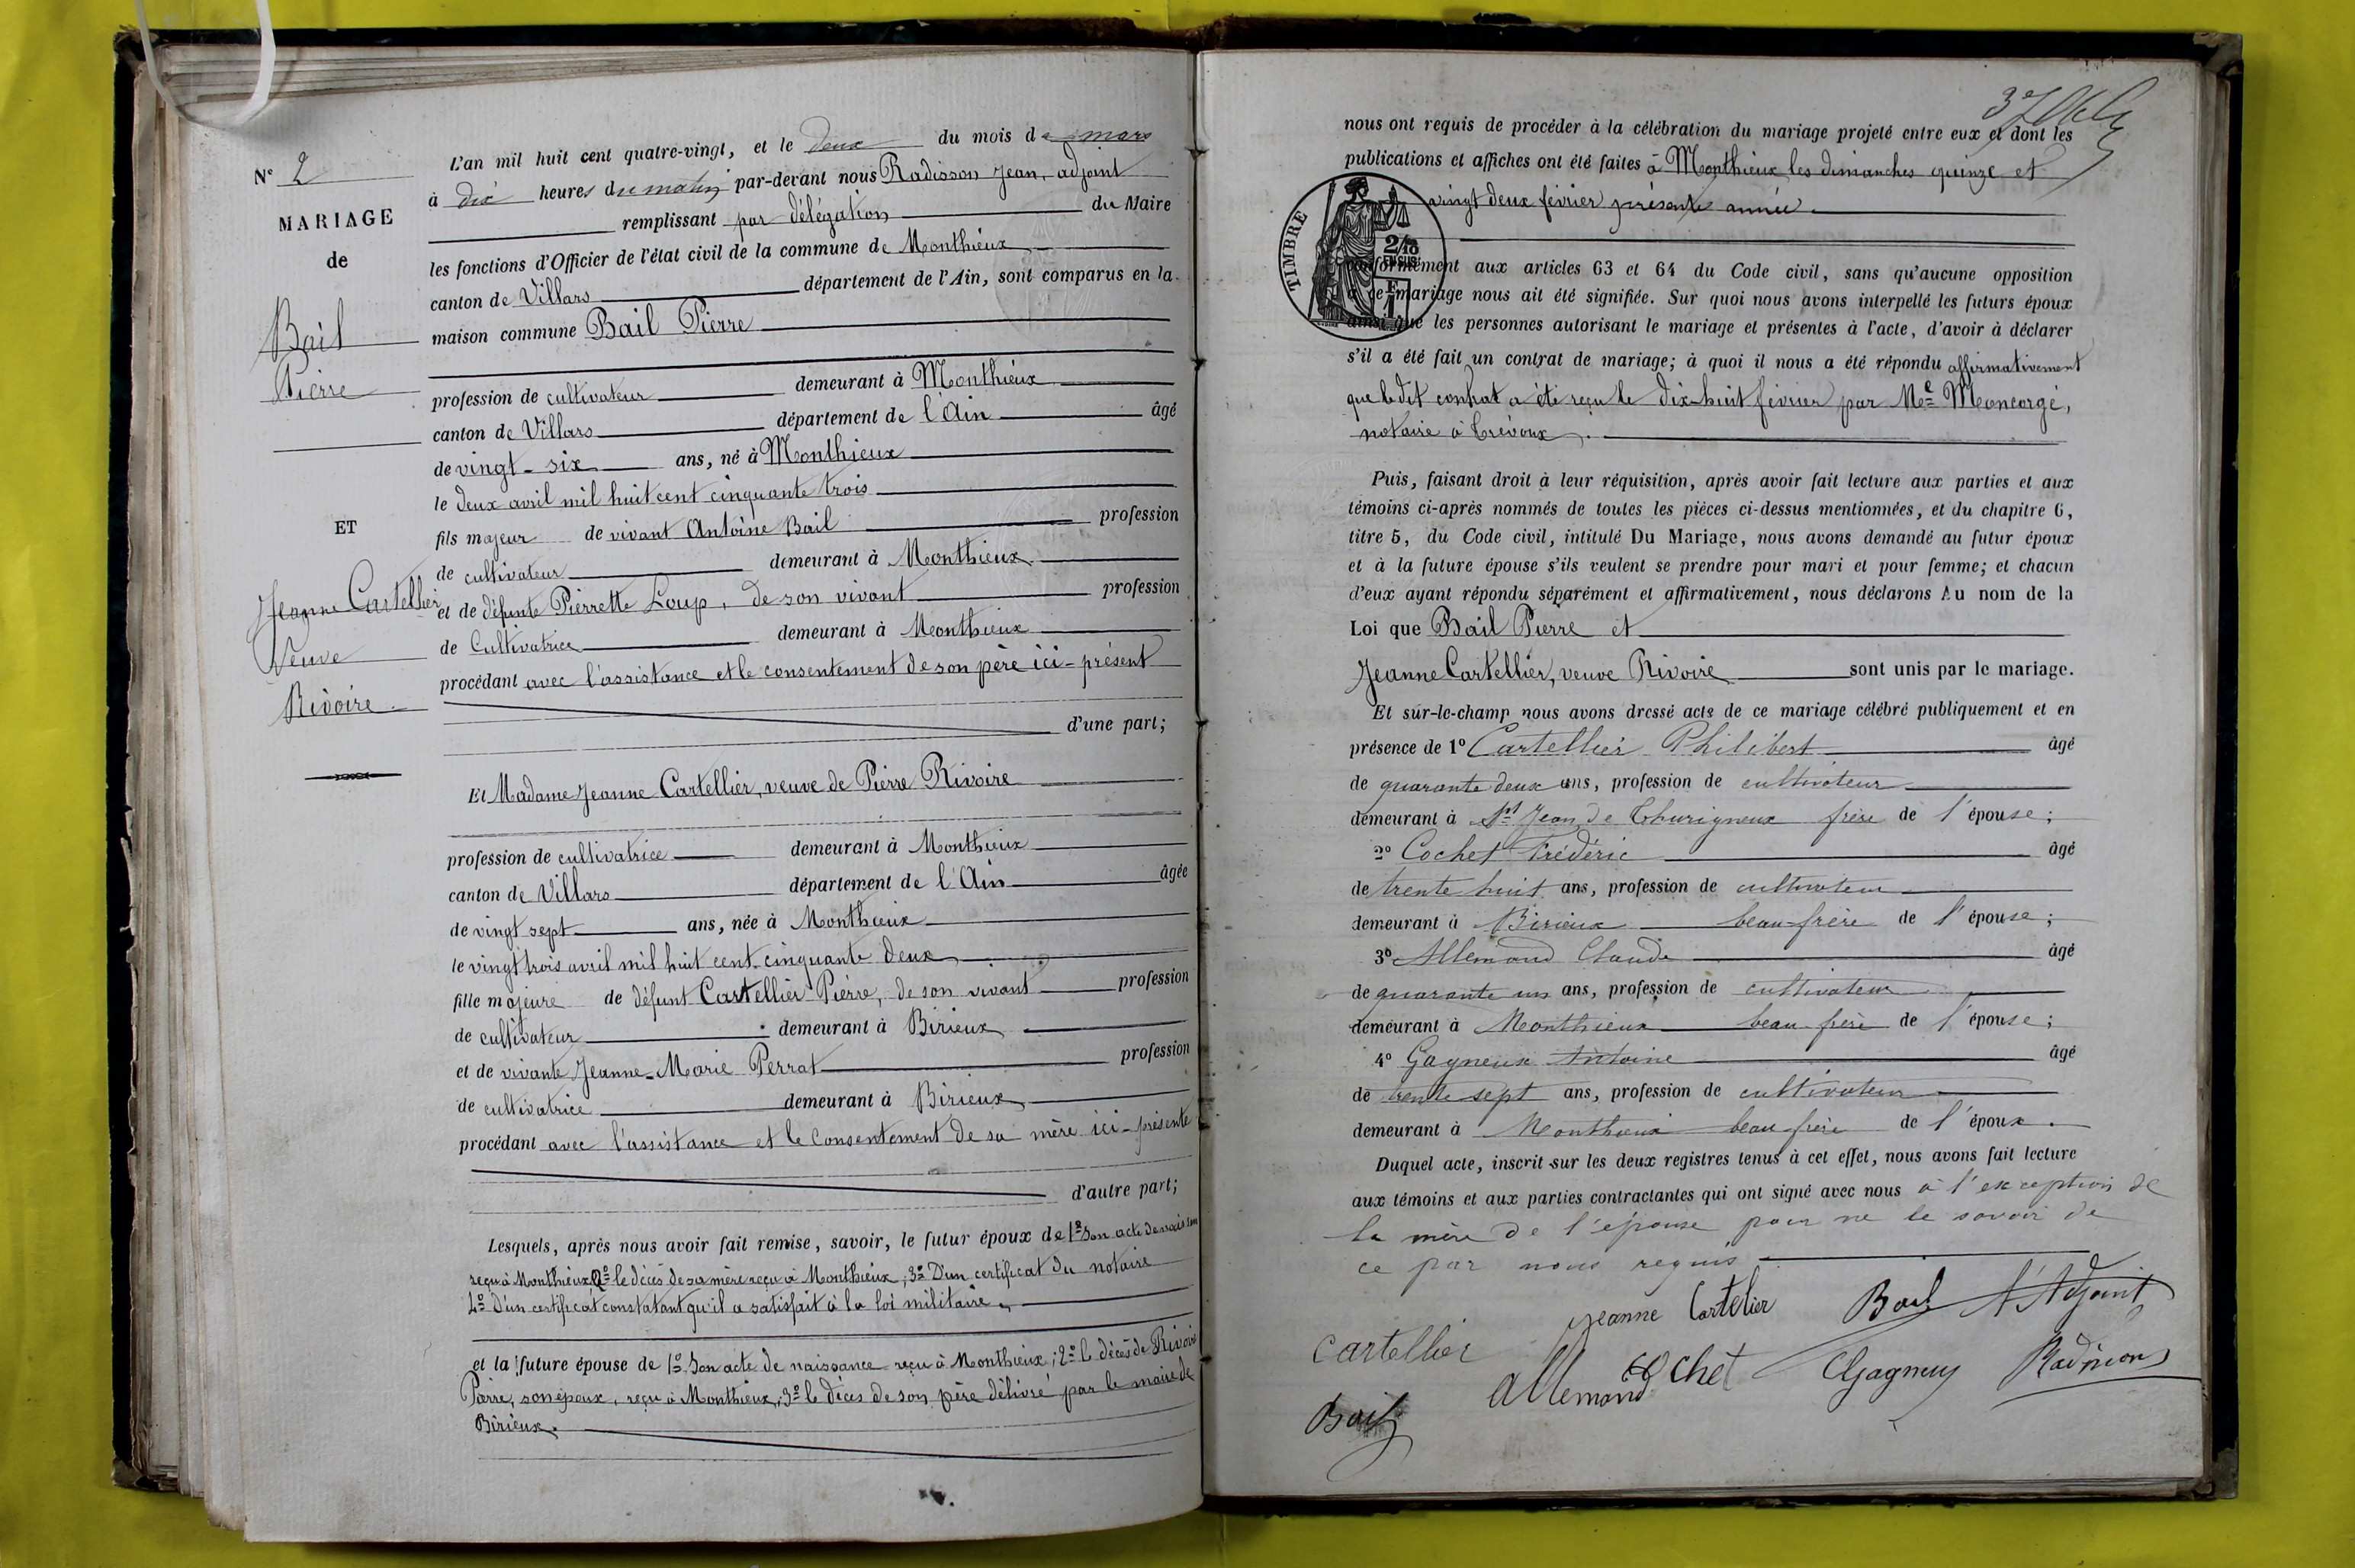 N° 2
MARIAGE
de
Bail
Pierre
ET
Jeanne Cartellier
Veuve
Rivoire
L'an mil huit cent quatre-vingt, et le deux du mois de mars
à dix heures du matin par-devant nous Radisson Jean, adjoint
remplissant par délégation du Maire
les fonctions d'Officier de l'état civil de la commune de Monthieux
canton de Villars département de l'Ain, sont comparus en la
maison commune Bail Pierre
profession de cultivateur demeurant à Monthieux
canton de Villars département de l'Ain âgé
de vingt-six ans, né à Monthieux
le deux avril mil huit cent cinquante trois
fils majeur de vivant Antoine Bail profession
de cultivateur demeurant à Monthieux
et de défunte Pierrette Loup, de son vivant profession
de Cultivatrice demeurant à Monthieux
procédant avec l'assistance et le consentement de son père ici-présent
d'une part;
Et Madame Jeanne Cartellier, veuve de Pierre Rivoire
profession de cultivatrice demeurant à Monthieux
canton de Villars département de l'Ain âgée
de vingt sept ans, née à Monthieux
le vingt trois avril mil huit cent cinquante deux
fille majeure de défunt Cartellier Pierre, de son vivant profession
de cultivateur demeurant à Birieux
et de vivante Jeanne-Marie Perrat profession
de cultivatrice demeurant à Birieux
procédant avec l'assistance et le consentement de sa mère ici-présente
d'autre part;
Lesquels, après nous avoir fait remise, savoir, le futur époux de 1° Son acte de naissance
reçu à Monthieux, 2° le décès de sa mère reçu à Monthieux, 3° D'un certificat du notaire
4° D'un certificat constatant qu'il a satisfait à la loi militaire.
et la future épouse de 1° Son acte de naissance reçu à Monthieux; 2° le décès de Rivoire
Pierre, son époux, reçu à Monthieux; 3° le décès de son père délivré par le maire de
Birieux.
nous ont requis de procéder à la célébration du mariage projeté entre eux et dont les
publications et affiches ont été faites à Monthieux les dimanches quinze et
vingt deux février présente année.
TIMBRE
conformément aux articles 63 et 64 du Code civil, sans qu'aucune opposition
à ce mariage nous ait été signifiée. Sur quoi nous avons interpellé les futurs époux
ainsi que les personnes autorisant le mariage et présentes à l'acte, d'avoir à déclarer
s'il a été fait un contrat de mariage; à quoi il nous a été répondu affirmativement
que le dit contrat a été reçu le dix-huit février par Me Moncorgé,
notaire à Trévoux.
Puis, faisant droit à leur réquisition, après avoir fait lecture aux parties et aux
témoins ci-après nommés de toutes les pièces ci-dessus mentionnées, et du chapitre 6,
titre 5, du Code civil, intitulé Du Mariage, nous avons demandé au futur époux
et à la future épouse s'ils veulent se prendre pour mari et pour femme; et chacun
d'eux ayant répondu séparément et affirmativement, nous déclarons Au nom de la
Loi que Bail Pierre et
Jeanne Cartellier, veuve Rivoire sont unis par le mariage.
Et sur-le-champ nous avons dressé acte de ce mariage célébré publiquement et en
présence de 1° Cartellier Philibert âgé
de quarante deux ans, profession de cultivateur
demeurant à St Jean de Thurigneux frère de l'épouse;
2° Cochet Frédéric âgé
de trente huit ans, profession de cultivateur
demeurant à Birieux beau-frère de l'épouse;
3° Allemand Claude âgé
de quarante un ans, profession de cultivateur
demeurant à Monthieux beau frère de l'épouse;
4° Gagneux Antoine âgé
de trente sept ans, profession de cultivateur
demeurant à Monthieux beau frère de l'époux.
Duquel acte, inscrit sur les deux registres tenus à cet effet, nous avons fait lecture
aux témoins et aux parties contractantes qui ont signé avec nous à l'exception de
la mère de l'épouse pour ne le savoir de
ce par nous requis
jeanne Cartelier Bail L'Adjoint
Cartellier
Allemand Cochet Gagneux Radisson
Bail